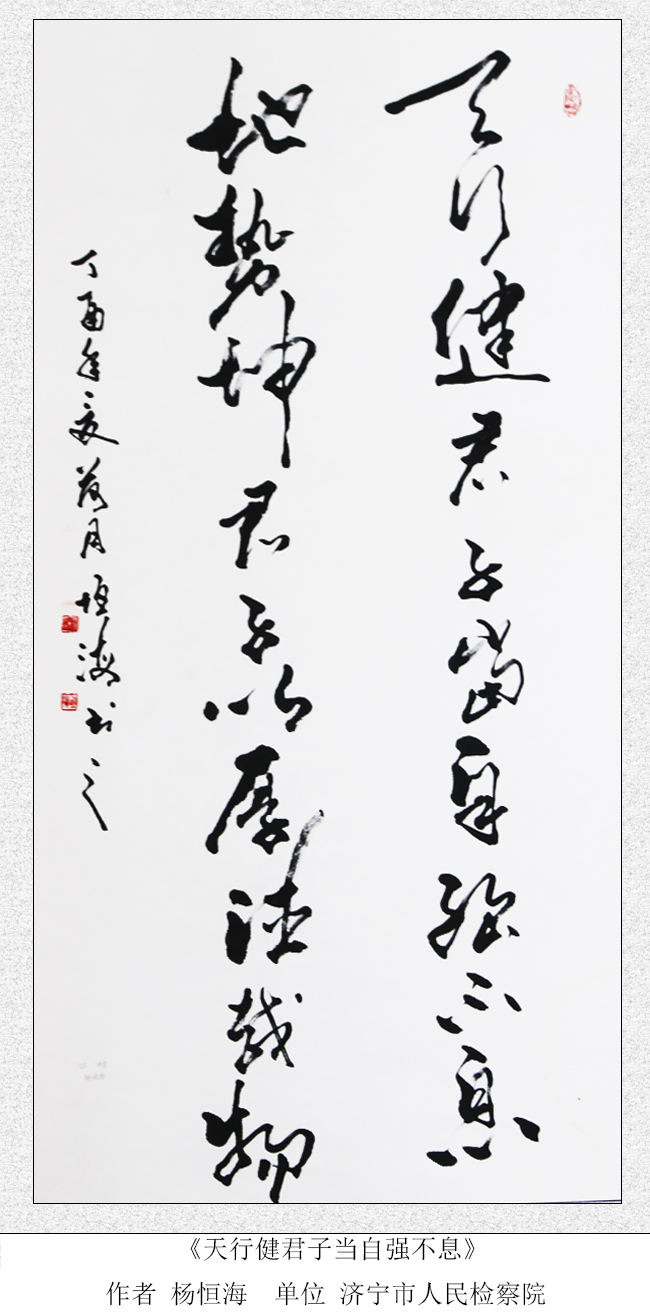 天行健君子當自強不息
地勢坤君子以厚德載物
丁酉年夏荷月恒海書之
《天行健君子当自强不息》
作者 杨恒海 单位 济宁市人民检察院